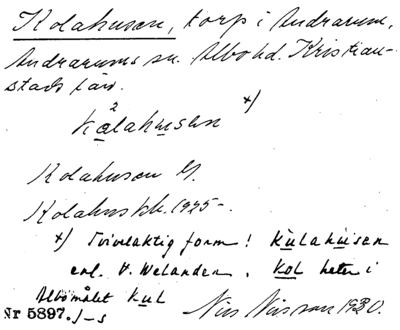 Kolahusen, torp i Andrarum,
Andrarums sn. Albo hd. Kristian-
stads län.
2
kålahusen x)
Kolahusen G.
Kolahus 1925-.
x) Tvivelaktig form! Kulahusen
enl. V. Welander. Kol heter i
Albomålet kul
Nr 5897. Nils Nilsson 1930.